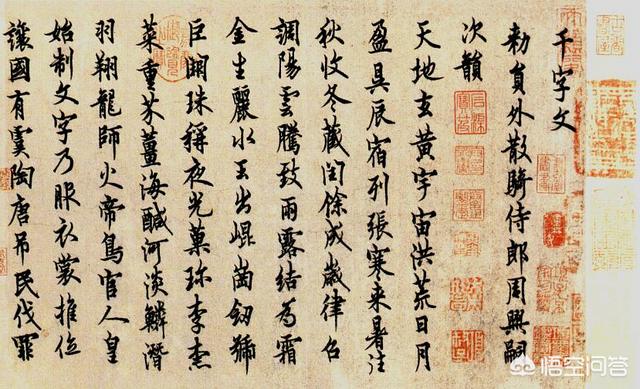 千字文
勑員外散騎侍郎周興嗣
次韻
天地玄黃宇宙洪荒日月
盈昃辰宿列張寒来暑往
秋收冬藏閏餘成歲律召
調陽雲騰致雨露結為霜
金生麗水玉出崐崗劒號
巨闕珠稱夜光菓珎李柰
菜重芥薑海醎河淡鱗潛
羽翔龍師火帝鳥官人皇
始制文字乃服衣裳推位
讓國有虞陶唐吊民伐罪
悟空问答